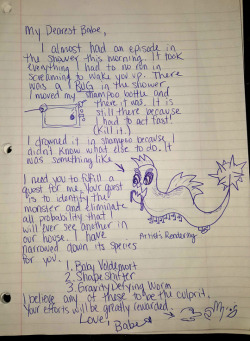 My Dearest Babe,
I almost had an episode in
the shower this morning. It took
everything I had to no run
screaming to wake you up. There
was a BUG in the shower.
I moved my shampoo bottle and
there it was. It is
still there because
I had to act fast.
(Kill it.)
I drowned it in shampoo because I
didn't know what else to do. It
was something like
I need you to fulfill a
quest for me. Your quest
is to identify the
monster and eliminate
all probability that I
will ever see another in
our house. I have
narrowed down its species
for you.
Artist's Rendering
1. Baby Voldemort
2. Shape shifter
3. Gravity Defying Worm
I believe any of these to be the culprit.
Your efforts will be greatly rewarded.
Love,
Babe